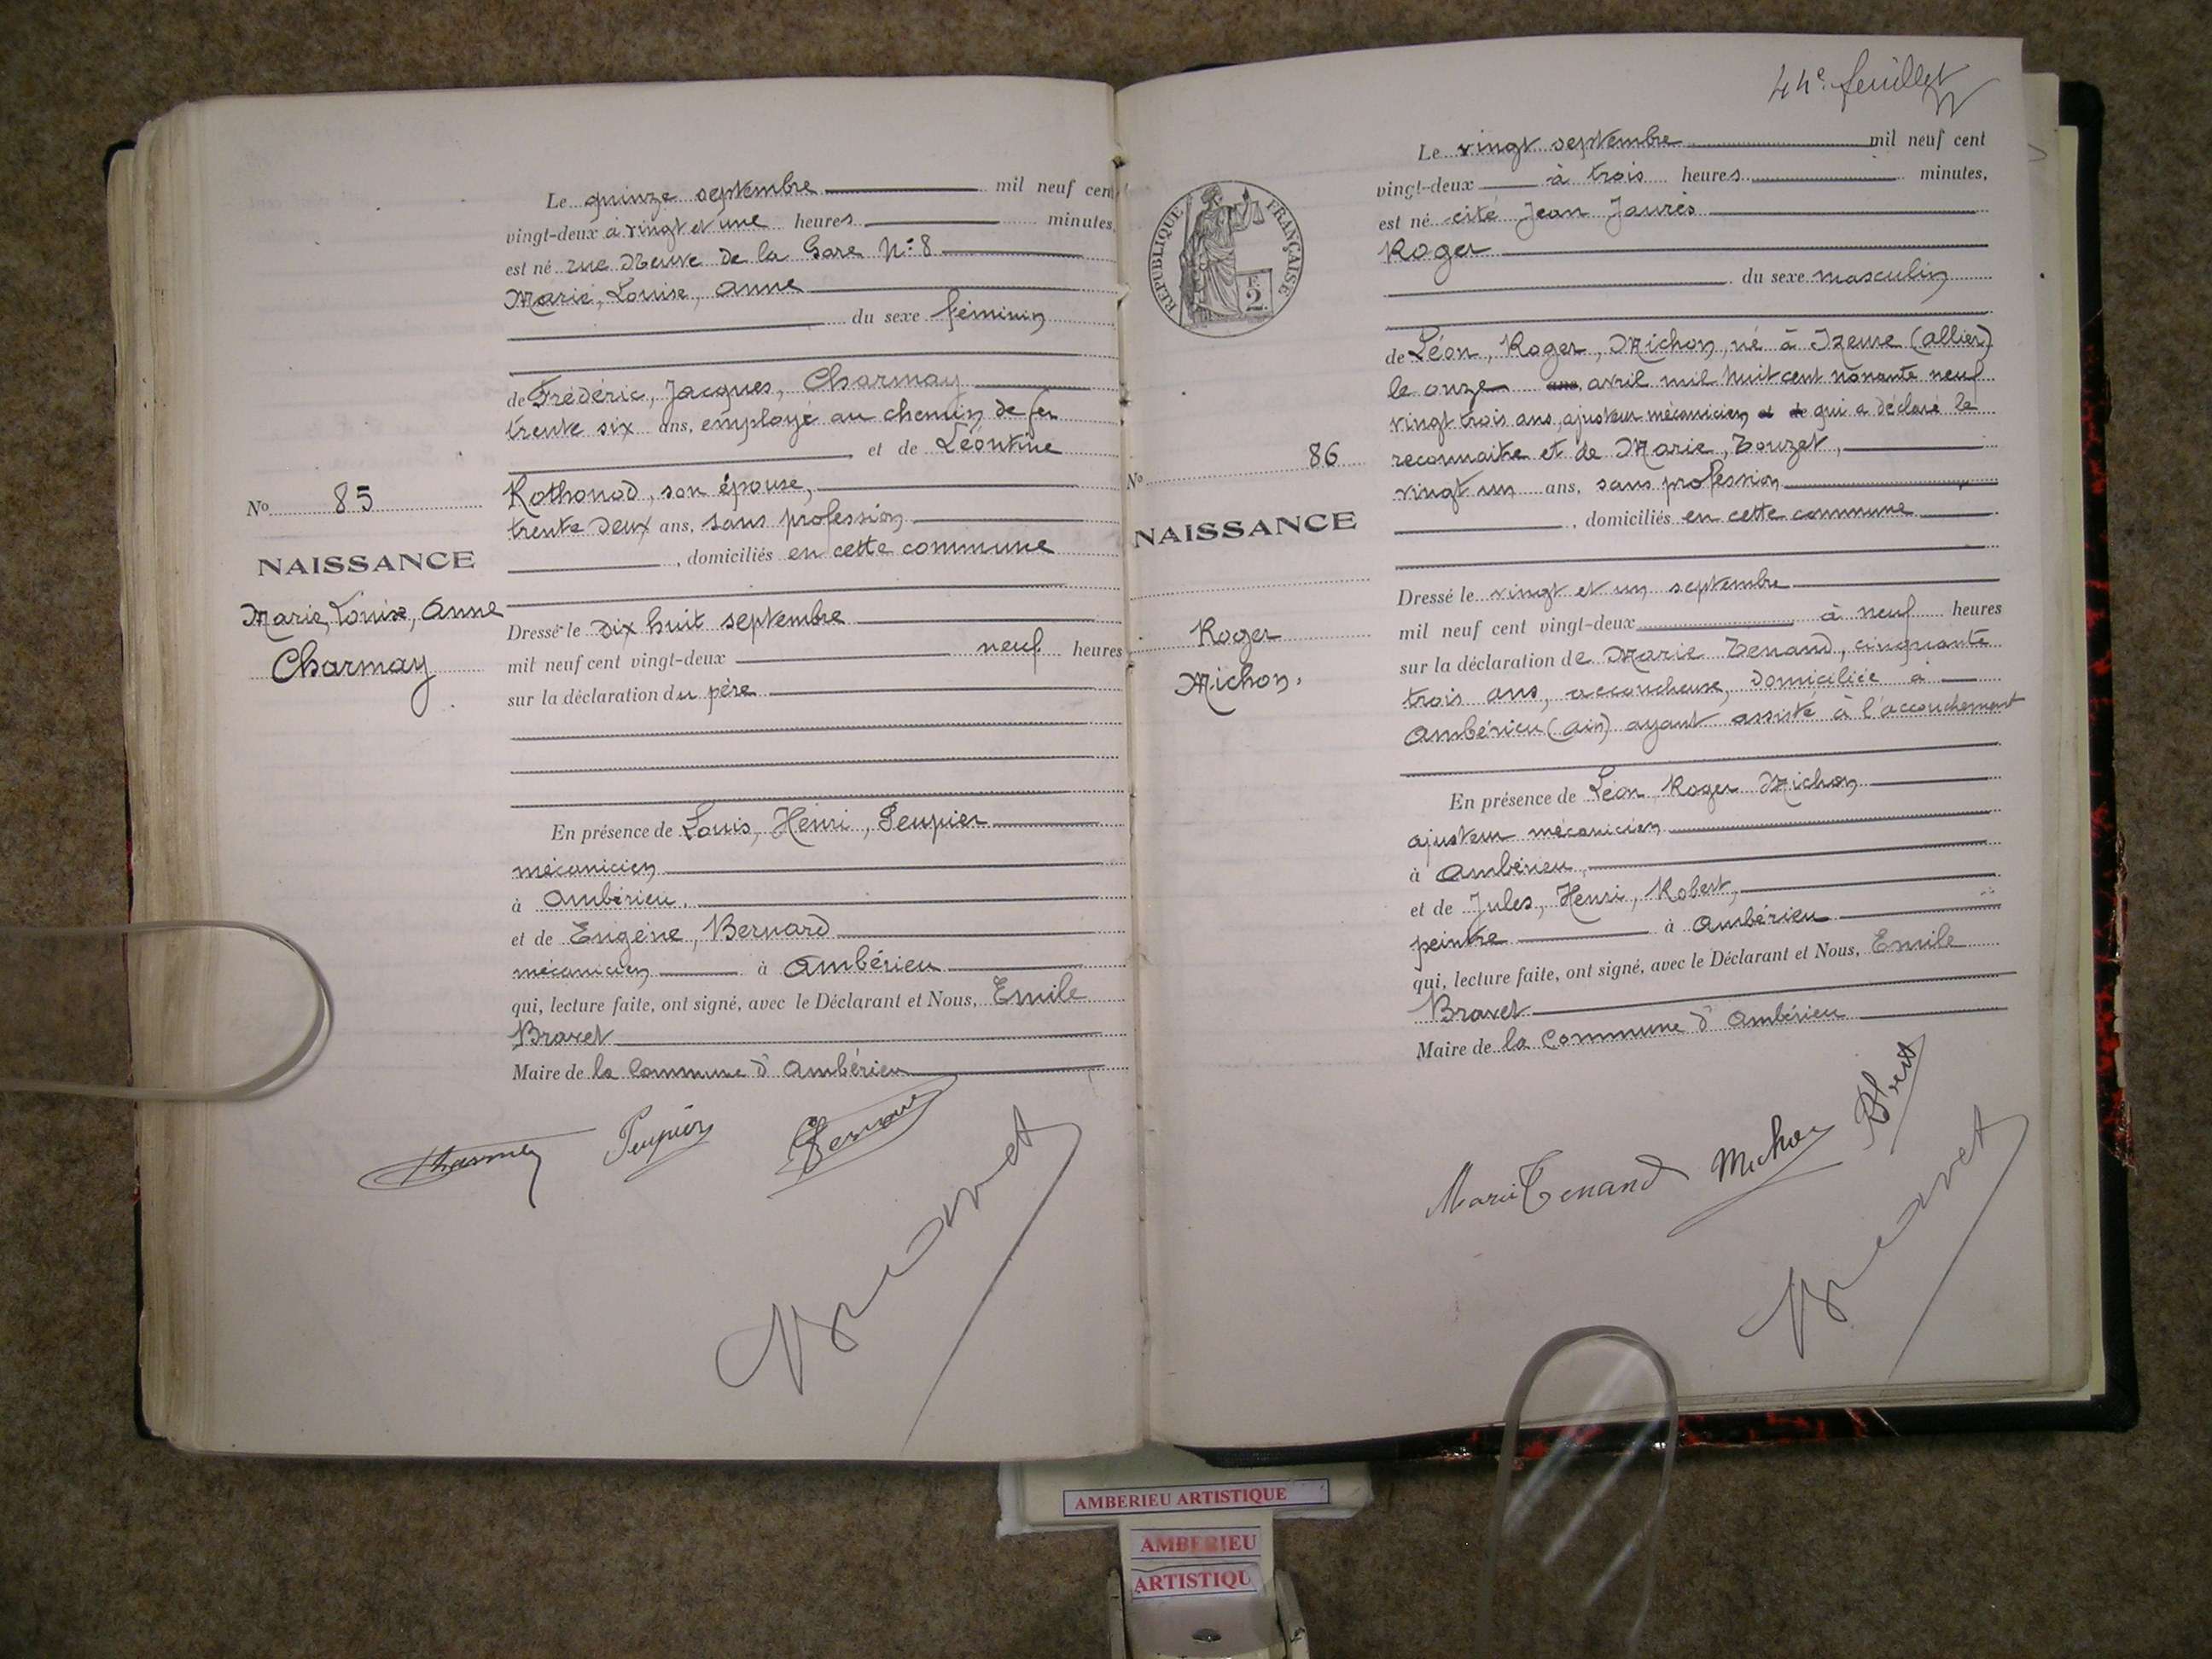 Le quinze septembre mil neuf cent
vingt-deux à vingt et une heures minutes,
est né rue Neuve de la Gare N° 8
Marie, Louise, Anne
du sexe féminin
de Frédéric, Jacques, Charmay
trente six ans, employé au chemin de fer
et de Léontine
Rothonod, son épouse,
trente deux ans, sans profession
, domiciliés en cette commune
No 85
NAISSANCE
Marie, Louise, Anne
Charmay
Dressé le dix huit septembre
mil neuf cent vingt-deux neuf heures
sur la déclaration du père
En présence de Louis, Henri, Peupier
mécanicien
à Ambérieu,
et de Eugène, Bernard
mécanicien à Ambérieu
qui, lecture faite, ont signé, avec le Déclarant et Nous, Emile
Bravet
Maire de la Commune d'Ambérieu
Charmay Peupier Bernard
Bravet
44e feuillet
REPUBLIQUE FRANÇAISE
2
Le vingt septembre mil neuf cent
vingt-deux à trois heures minutes,
est né cité Jean Jaurès
Roger
du sexe masculin
de Léon, Roger, Michon, né à Izeure (Allier)
le onze ans, avril mil huit cent nonante neuf
vingt trois ans, ajusteur mécanicien et de qui a déclaré le
reconnaitre et de Marie, Touzet,
vingt un ans, sans profession
, domiciliés en cette commune
No 86
NAISSANCE
Roger
Michon.
Dressé le vingt et un septembre
mil neuf cent vingt-deux à neuf heures
sur la déclaration de Marie Tenand, cinquante
trois ans, accoucheuse, domiciliée à
Ambérieu (Ain) ayant assisté à l'accouchement
En présence de Léon Roger Michon
ajusteur mécanicien
à Ambérieu,
et de Jules, Henri, Robert,
peintre à Ambérieu
qui, lecture faite, ont signé, avec le Déclarant et Nous, Emile
Bravet
Maire de la Commune d'Ambérieu
Marie Tenand Michon
Bravet
AMBERIEU ARTISTIQUE
AMBERIEU
ARTISTIQU